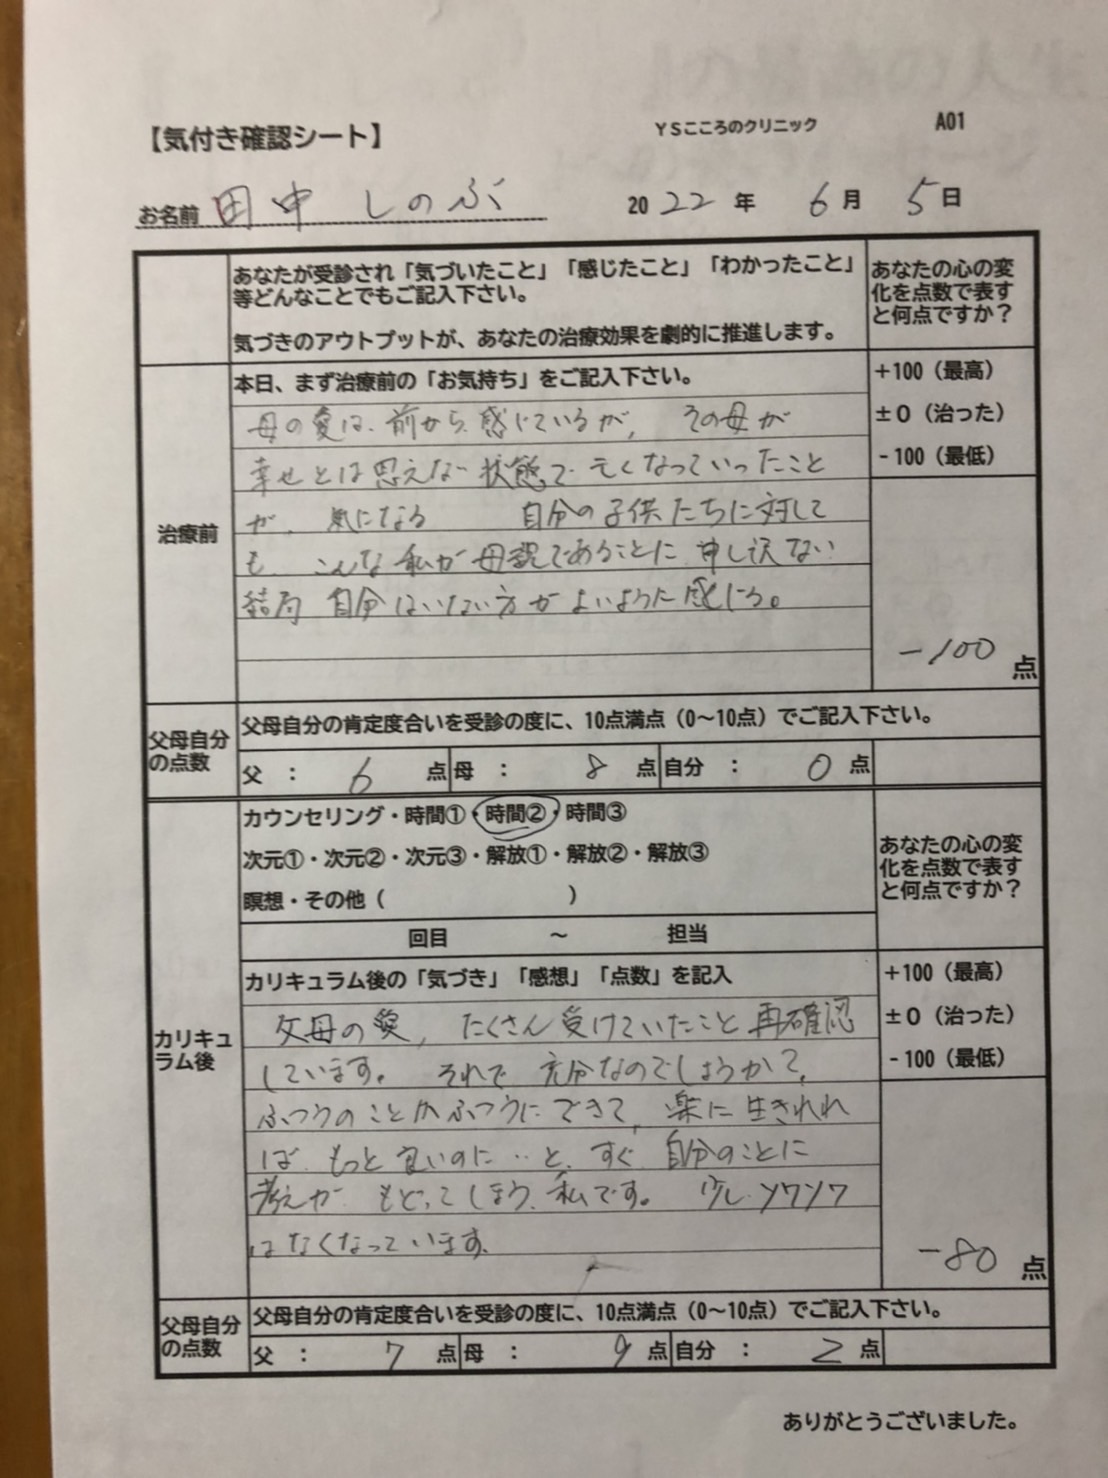 【気付き確認シート】 YSこころのクリニック A01
お名前 田中 しのぶ 2022年 6月 5日
あなたが受診され「気づいたこと」「感じたこと」「わかったこと」
等どんなことでもご記入下さい。
気づきのアウトプットが、あなたの治療効果を劇的に推進します。
あなたの心の変
化を点数で表す
と何点ですか？
治療前
本日、まず治療前の「お気持ち」をご記入下さい。
母の愛は、前から感じているが、その母が
幸せとは思えない状態で亡くなっていったこと
が、気になる 自分の子供たちに対して
も、こんな私が母親であることに申し訳ない
結局 自分はいない方がよいように感じる。
+100（最高）
±0（治った）
-100（最低）
-100点
父母自分
の点数
父母自分の肯定度合いを受診の度に、10点満点（0～10点）でご記入下さい。
父： 6点 母： 8点 自分： 0点
カリキュ
ラム後
カウンセリング・時間①・時間②・時間③
次元①・次元②・次元③・解放①・解放②・解放③
瞑想・その他（ ）
回目 ～ 担当
あなたの心の変
化を点数で表す
と何点ですか？
カリキュラム後の「気づき」「感想」「点数」を記入
父母の愛、たくさん受けていたこと再確認
しています。それで充分なのでしょうかて、
ふつうのことがふつうにできて、楽に生きれれ
ば、もっと良いのに…と、すぐ自分のことに
考えが もどってしまう、私です。少しソワソワ
はなくなっています。
+100（最高）
±0（治った）
-100（最低）
-80点
父母自分
の点数
父母自分の肯定度合いを受診の度に、10点満点（0～10点）でご記入下さい。
父： 7点 母： 9点 自分： 2点
ありがとうございました。